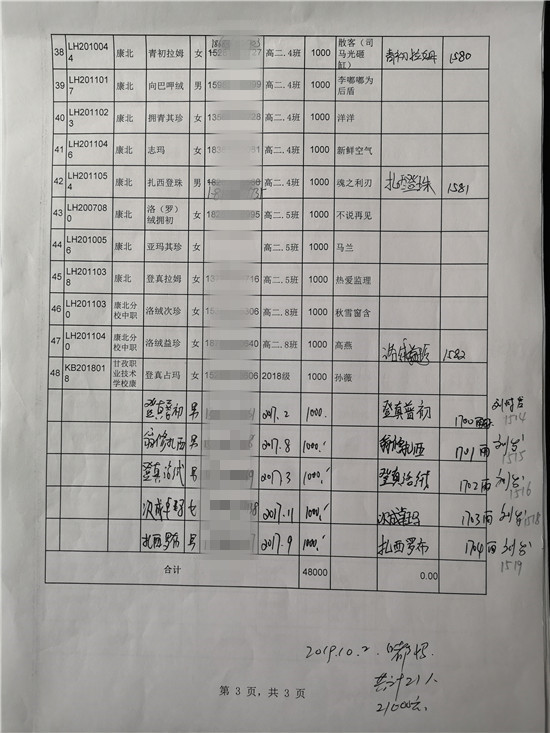 38 LH2010044 康北 青初拉姆 女 高二.4班 1000 散客（司马光砸缸） 青初拉姆 1580
39 LH2011017 康北 向巴呷绒 男 高二.4班 1000 李嘟嘟为后盾
40 LH2011023 康北 拥青其珍 女 高二.4班 1000 洋洋
41 LH2011046 康北 志玛 女 高二.4班 1000 新鲜空气
42 LH2011054 康北 扎西登珠 男 高二.4班 1000 魂之利刃 扎西登珠 1581
43 LH2007080 康北 洛（罗）绒拥初 女 高二.5班 1000 不说再见
44 LH2010056 康北 亚玛其珍 女 高二.5班 1000 马兰
45 LH2011038 康北 登真拉姆 女 高二.5班 1000 热爱监理
46 LH2011030 康北分校中职 洛绒次珍 女 高二.8班 1000 秋雪窗含
47 LH2011040 康北分校中职 洛绒益珍 女 高二.8班 1000 高燕 洛绒益珍 1582
48 KB2018018 甘孜职业技术学校康 登真占玛 女 2018级 1000 孙薇
登真普初 男 2017.2 1000. 登真普初 1700雨 1514
扎西 男 2017.8 1000. 扎西 1701雨 1515
登真洛绒 男 2017.3 1000. 登真洛绒 1702雨 1516
女 2017.11 1000. 1703雨 1518
扎西罗布 男 2017.9 1000. 扎西罗布 1704雨 1519
合计 48000 0.00
2019.10.2.
第 3 页，共 3 页
共计21人
21000元.